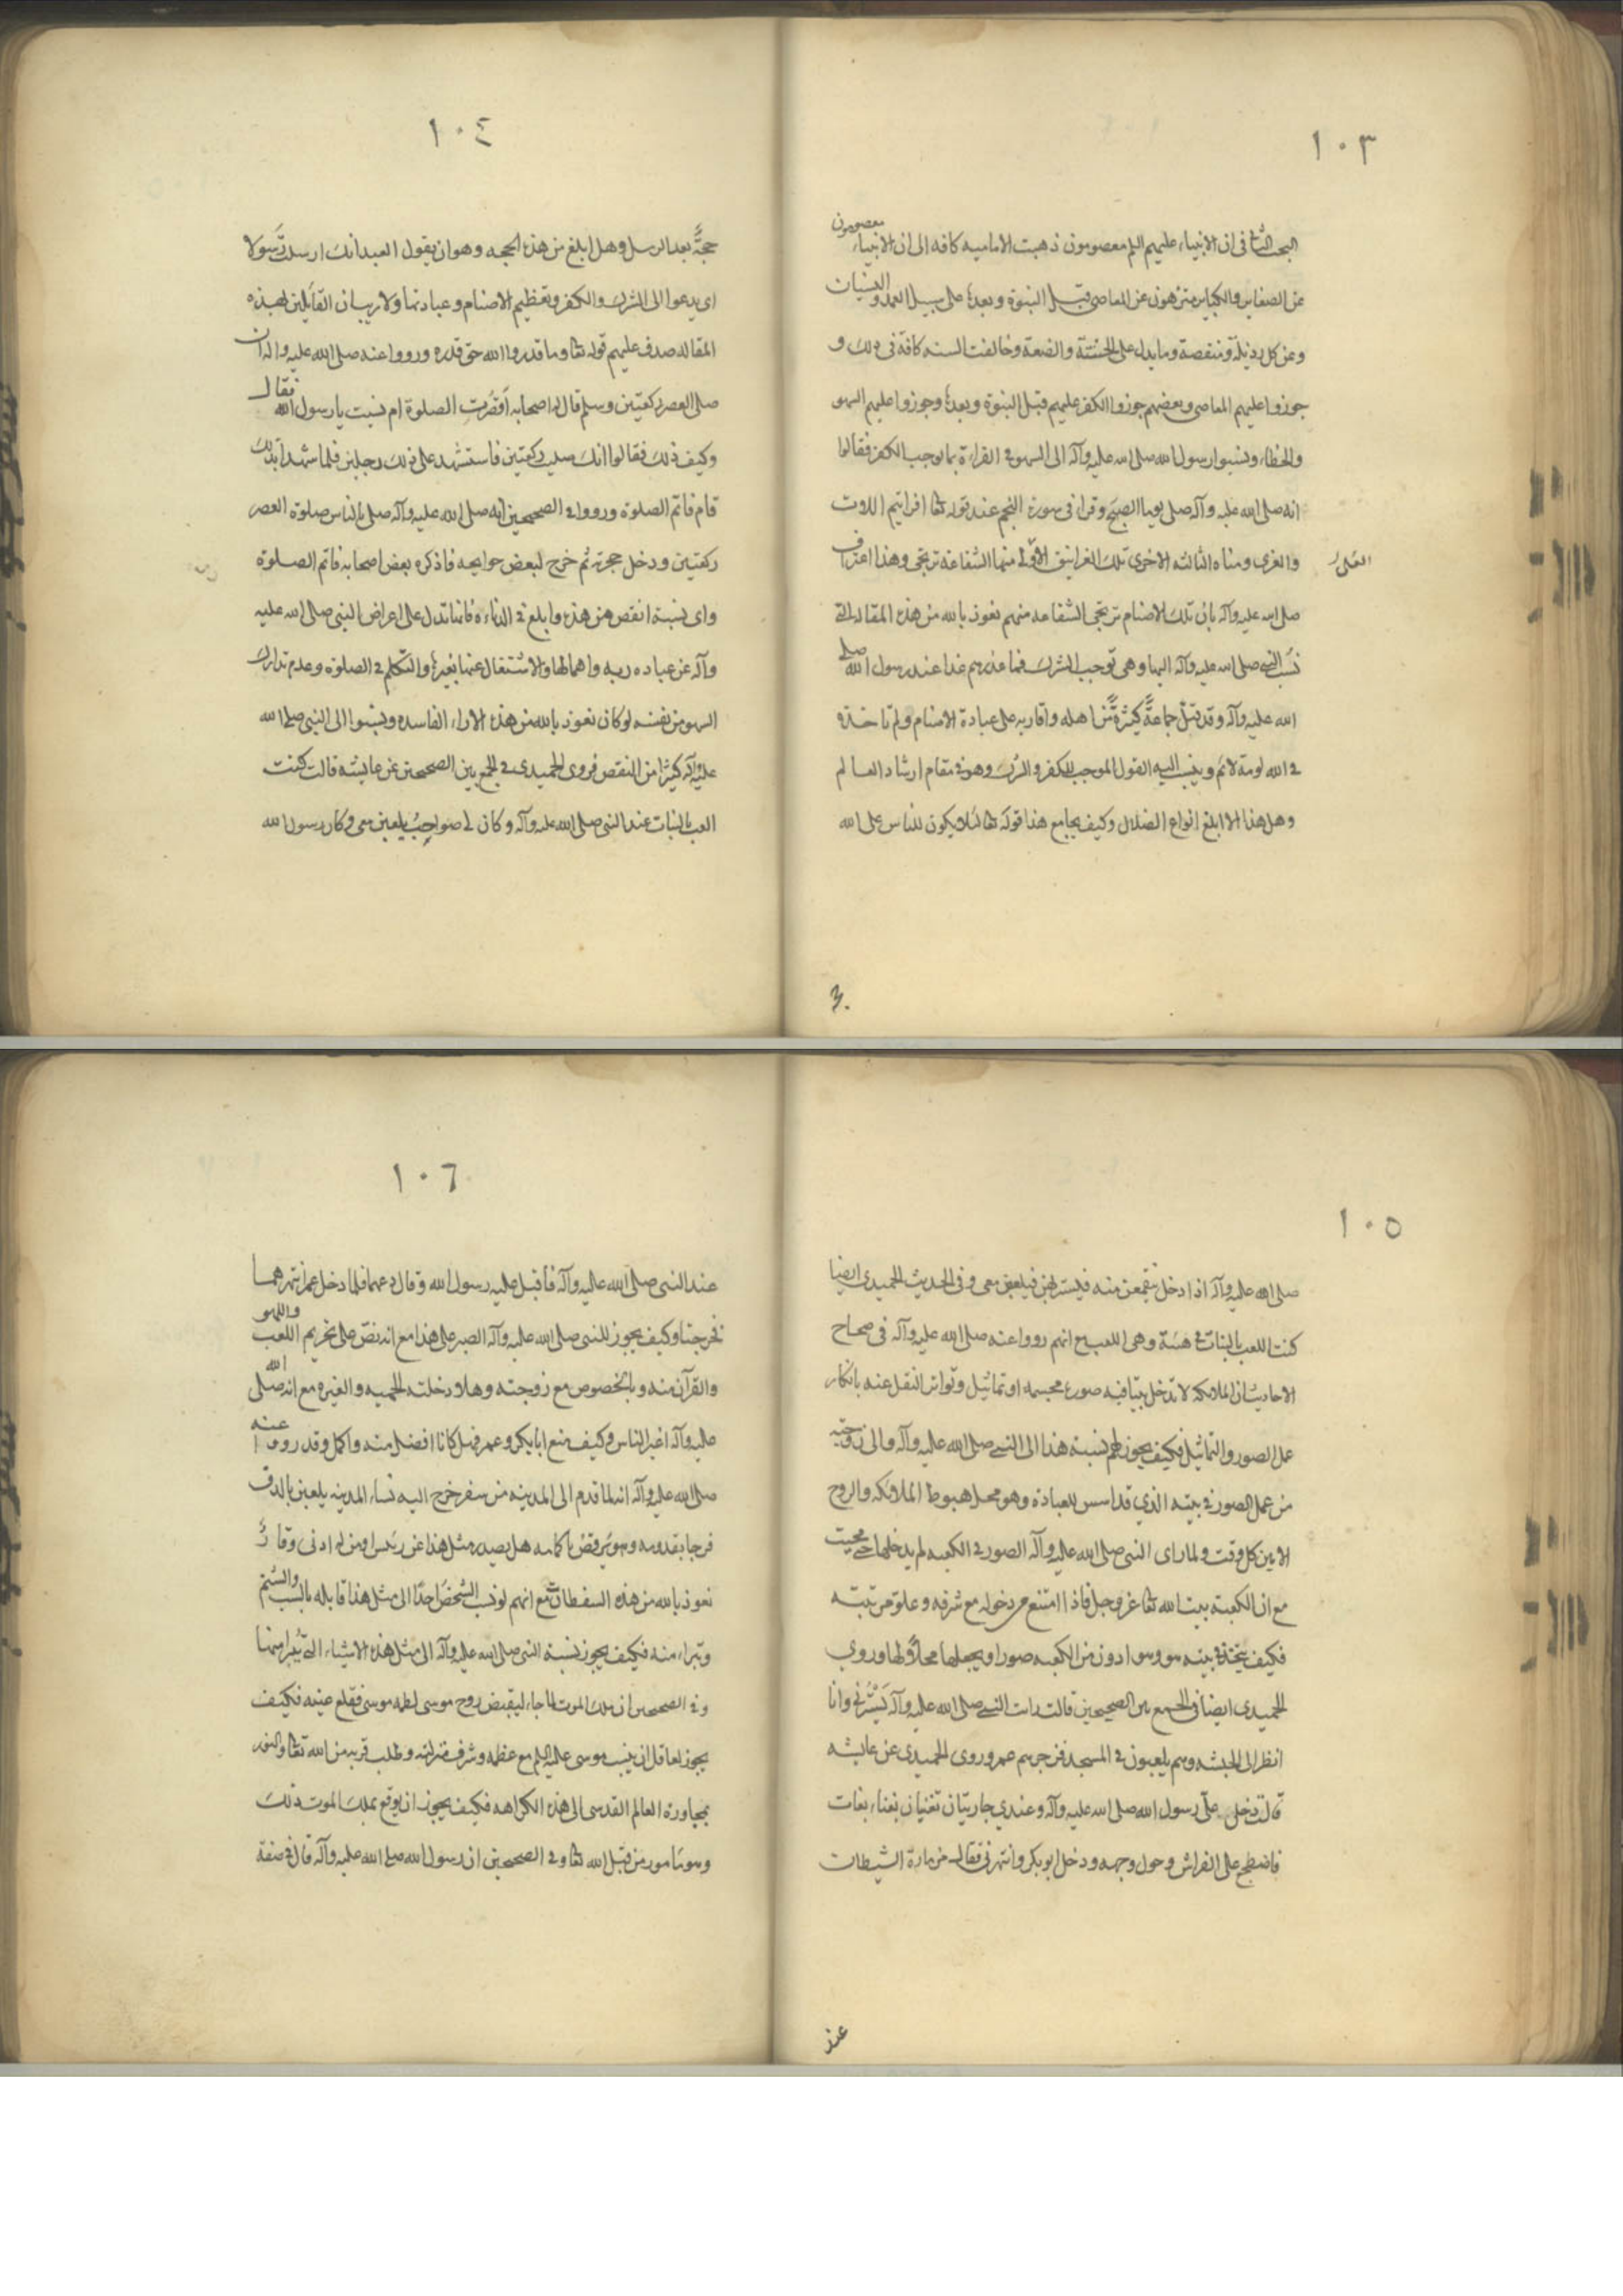 ١٠٣
البحث الثاني في ان الانبياء عليهم السلم معصومون ذهبت الامامیه كافه الى ان الانبياء معصومون
عن الصغاير والكباير منزهون عن المعاصي قبل النبوة وبعدها على سبيل العمد والنسيان
وعن كل رذيلة ومنقصة وما يدل على الخسّة والضعة وخالفت السنه كافة في ذلك و
جوزوا عليهم المعاصي وبعضهم جوزوا الكفر عليهم قبل النبوة وبعدها وجوزوا عليهم السهو
والخطاء ونسبوا رسول الله صلى الله عليه وآله الى السهو في القراءة بما يوجب الكفر فقالوا
انه صلى الله عليه وآله صلى يوما الصبح وقرا في سورة النجم عند قوله تعا افرايتم اللات
والعزى ومناه الثالثه الاخرى تلك الغرانيق الاولى منها الشفاعة ترتجى وهذا اعتراف
العلى
صلى الله عليه وآله بان تلك الاصنام ترتجى الشفاعه منهم نعوذ بالله من هذه المقاله التي
نسب النبي صلى الله عليه وآله اليها وهي توجب الشرك فما عذرهم غدا عند رسول الله صلى
الله عليه وآله وقد قتل جماعةً كثيرةً من اهله واقاربه على عبادة الاصنام ولم تاخذه
في الله لومة لائم وينسب اليه القول الموجب للكفر والشرك وهو في مقام ارشاد العالم
وهل هذا الا ابلغ انواع الضلال وكيف يجامع هذا قوله تعا لئلا يكون للناس على الله
١٠٤
حجةً بعد الرسل وهل ابلغ من هذه الحجه وهو ان يقول العبد انك ارسلت رسولا
اي يدعوا الى الشرك والكفر وتعظيم الاصنام وعبادتها ولا ريب ان القائلين لهذه
المقاله صدق عليهم قوله تعا وما قدروا الله حق قدره ورووا عنه صلى الله عليه واله ان
صلى العصر ركعتين وسلم قال له اصحابه أقصرت الصلوة ام نسيت يا رسول الله فقال
وكيف ذلك فقالوا انك صليت ركعتين فاستشهد على ذلك رجلين فلما شهدا بذلك
قام فاتم الصلوة ورووا في الصحيحين انه صلى الله عليه وآله صلى بالناس صلوة العصر
ركعتين ودخل حجرته ثم خرج لبعض حوايجه فاذكره بعض اصحابه فاتم الصلوة
واى نسبة انقص من هذه وابلغ في الدناءة فانها تدل على اعراض النبي صلى الله عليه
وآله عن عباده ربه واهمالها والاشتغال عنها بغيرها والتكلم في الصلوة وعدم تدارك
السهو من نفسه لو كان نعوذ بالله من هذه الاراء الفاسده ونسبوا الى النبي صلى الله
عليه وآله كثيرا من النقص فروى الحميدى في الجمع بين الصحيحين عن عايشه قالت كنت
العب بالبنات عند النبي صلى الله عليه وآله وكان لي صواحب يلعبن معي وكان رسول الله
١٠٥
صلى الله عليه وآله اذا دخل يتقمعن منه فيسربهن فيلعبن معي وفي الحديث الحميدي ايضا
كنت العب بالبنات في بيته وهي اللعب مع انهم رووا عنه صلى الله عليه وآله في صحاح
الاحاديث ان الملائكه لا تدخل بيتا فيه صورة مجسمه او تماثيل وتواتر النقل عنه بانكار
عمل الصور والتماثيل فكيف يجوز لهم نسبة هذا الى النبي صلى الله عليه وآله والى زوجته
من عمل الصور في بيته الذي قد اسس للعبادة وهو محل هبوط الملائكه والروح
الامين كل وقت ولما راى النبي صلى الله عليه وآله الصور في الكعبه لم يدخلها حتى محيت
مع ان الكعبة بيت الله تعا عز وجل فاذا امتنع من دخوله مع شرفه وعلو مرتبته
فكيف يتخذ في بيته وهو ادون من الكعبه صورا ويجعلها محلا لها وروى
الحميدى ايضا في الجمع بين الصحيحين قالت رايت النبي صلى الله عليه وآله يسترني وانا
انظر الى الحبشه وهم يلعبون في المسجد فزجرهم عمر وروى الحميدى عن عايشه
قالت دخل علىّ رسول الله صلى الله عليه وآله وعندي جاريتان تغنيان بغناء بعاث
فاضطجع على الفراش وحول وجهه ودخل ابو بكر وانتهرني فقال مزمارة الشيطان
عند
١٠٦
عند النبي صلى الله عليه وآله فاقبل عليه رسول الله وقال دعهما فلما دخل غمزتهما
فخرجتا وكيف يجوز للنبي صلى الله عليه وآله الصبر على هذا مع انه نصّ على تحريم اللعب واللهو
والقرآن منه وبالخصوص مع زوجته وهلا دخلته الحميه والغيره مع انه صلى الله
عليه وآله اغير الناس وكيف منع ابا بكر وعمر فهل كانا افضل منه واكمل وقد رووا عنه
صلى الله عليه وآله انه لما قدم الى المدينه من سفر خرج اليه نساء المدينه يلعبن بالدف
فرحا بقدومه وهو يرقص باكمامه هل يصدر مثل هذا عن رئيس او من له ادنى وقار
نعوذ بالله من هذه السقطات مع انهم لو نسب الشخص احدا الى مثل هذا قابله بالسب والشتم
وتبراء منه فكيف يجوز نسبة النبي صلى الله عليه وآله الى مثل هذه الاشياء التي يتبرا منها
وفي الصحيحين ان ملك الموت لما جاء ليقبض روح موسى لطمه موسى فقلع عينه فكيف
يجوز لعاقل ان ينسب موسى عليه السلم مع عظمه وشرف منزلته وطلب قربه من الله تعا والفوز
بمجاورة العالم القدسي الى هذه الكراهه فكيف يجوز ان يوقع بملك الموت ذلك
وهو مامور من قبل الله تعا وفي الصحيحين ان رسول الله صلى الله عليه وآله قال في صفة